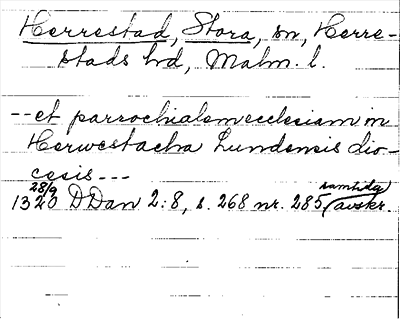 Herrestad, Stora, sn, Herre-
stads hd, Malm. l.
-- et parrochialem ecclesiam in
Herwestacha Lundensis dio-
cesis ---
28/9 samtida
1320 DDan 2:8, s. 268 nr. 285 (avskr.